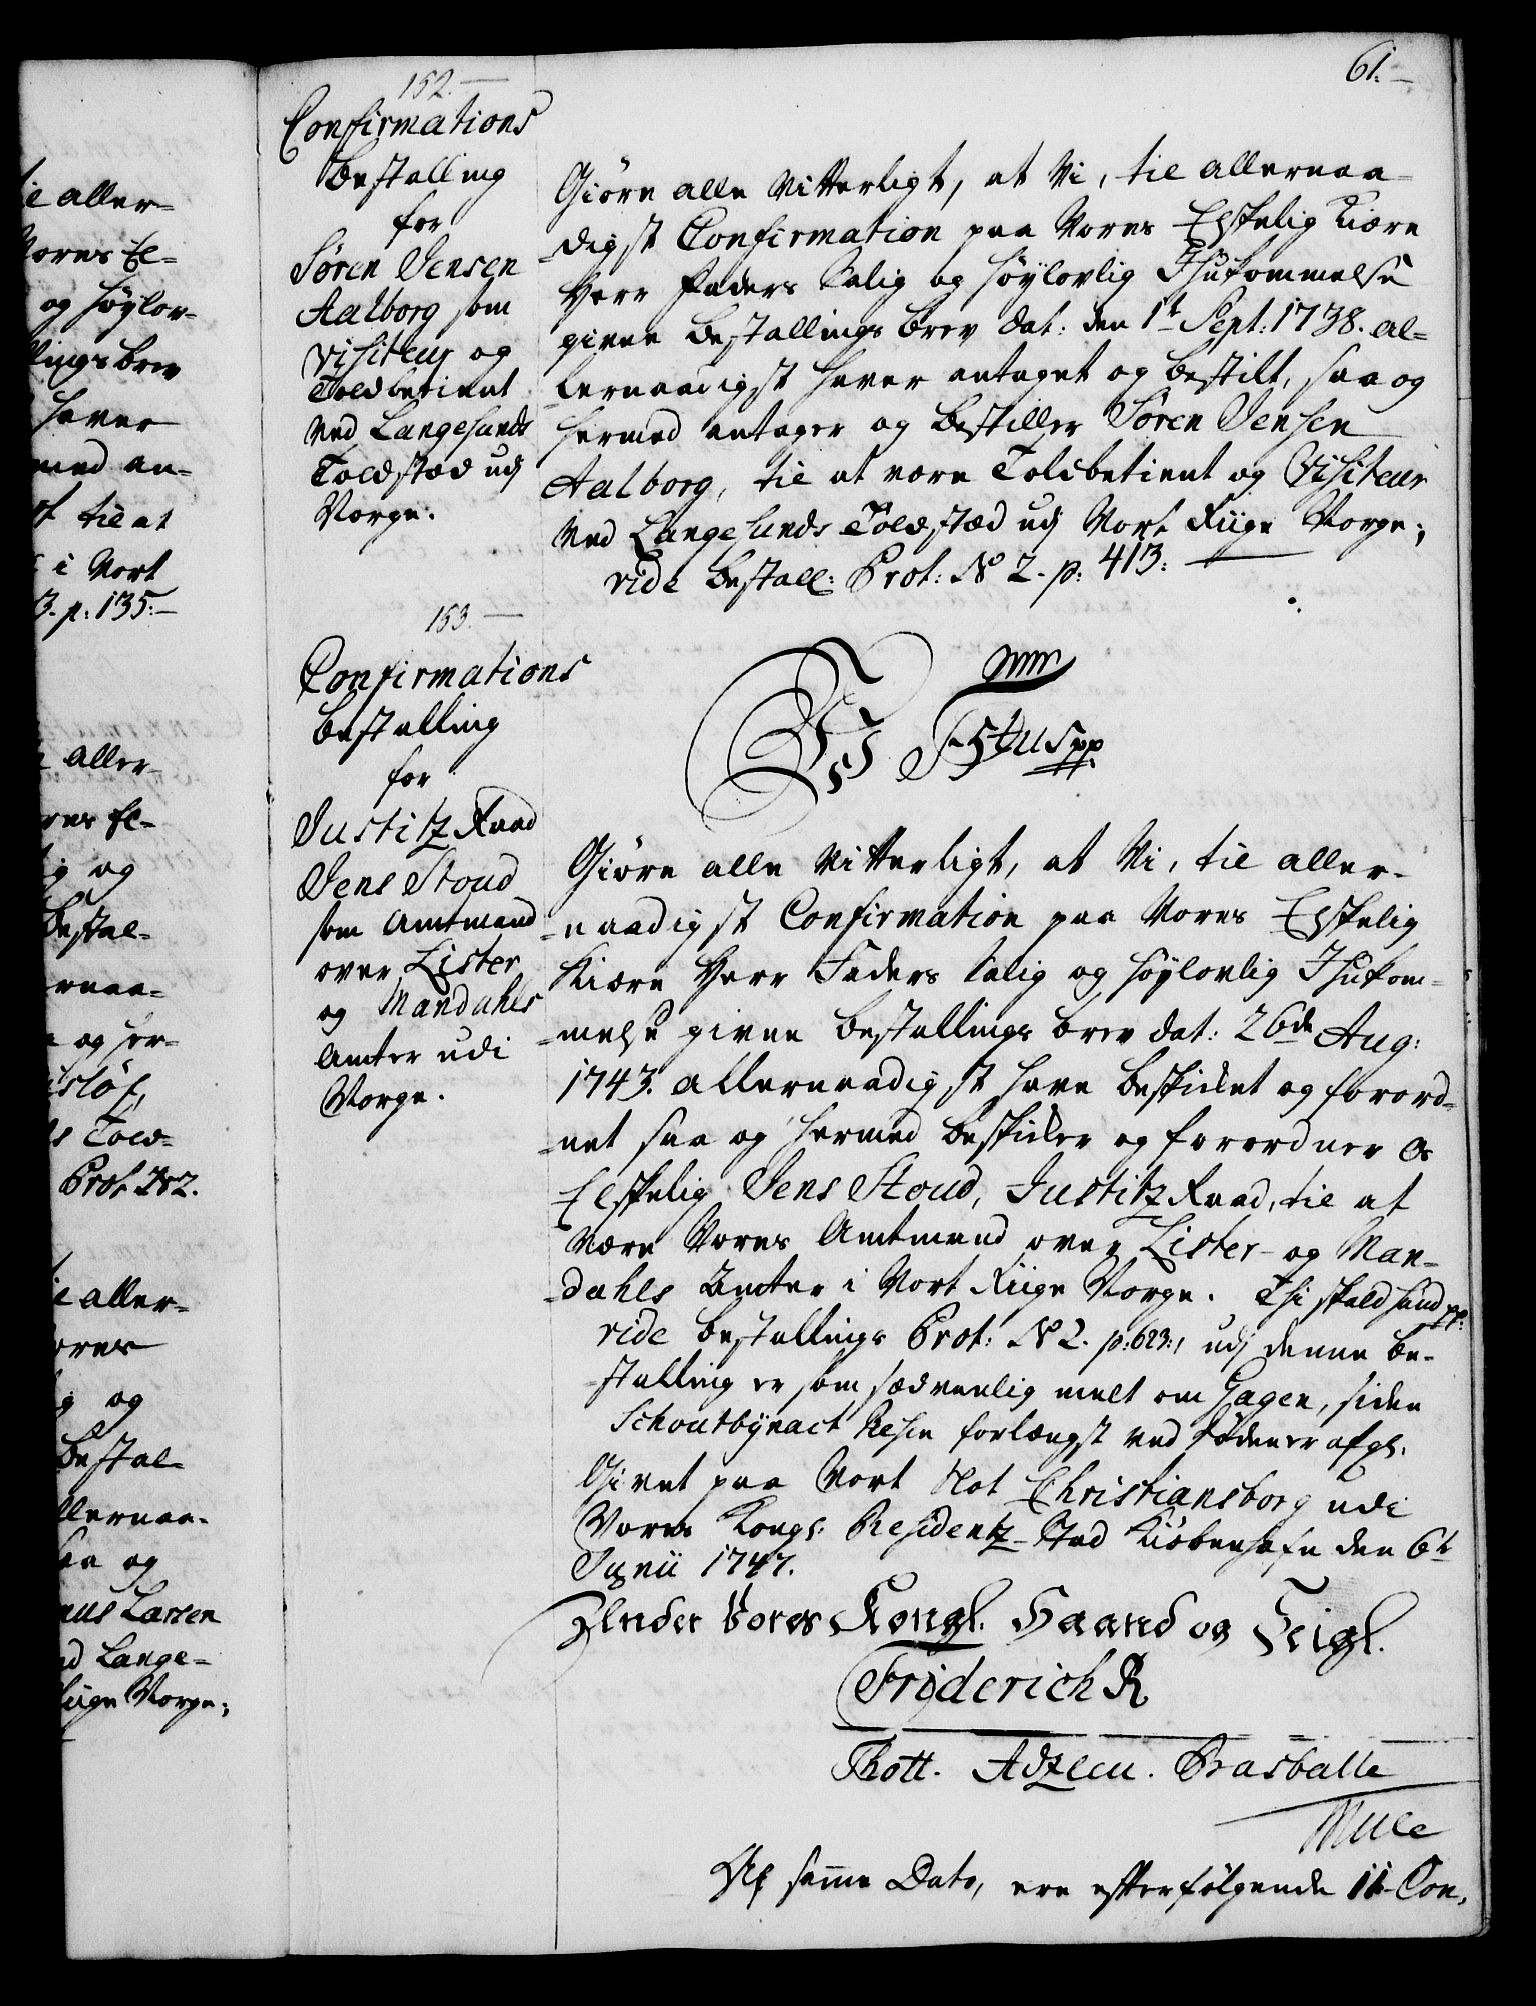 61.
152.
Confirmations
Bestalling
for
Søren Jensen
Aalborg som
Visiteur og
Toldbetient
ved Langesunds
Toldstæd udj
Norge.
Giøre alle Vitterligt, at Vi, til allernaa-
digst Confirmation paa Vores Elskelig Kiære
Herr Faders Salig og Høylovlig Ihukommelse
given Bestallings Brev dat: den 1t Sept: 1738. al-
lernaadigst haver antaget og bestilt, saa og
hermed antager og bestiller Søren Jensen
Aalborg, til at være Toldbetient og Visiteur
ved Langesunds Toldstæd udj Vort Riige Norge;
vide Bestall: Prot: No 2. p: 413:
153.
Confirmations
Bestalling
for
Justitz Raad
Jens Stoud
som Amtmand
over Lister
og Mandahls
Amter udi
Norge.
Vi F 5tus pp
Giøre alle Vitterligt, at Vi, til aller-
naadigst Confirmation paa Vores Elskelig
Kiære Herr Faders Salig og Høylovlig Ihukom-
melse given Bestallings Brev dat: 26de Aug:
1743. allernaadigst have beskicket og forord-
net saa og hermed beskicker og forordner Os
Elskelig Jens Stoud, Justitz Raad, til at
være Vores Amtmand over Lister- og Man-
dahls Amter i Vort Riige Norge. Thi skal hand pp:
vide Bestallings Prot: No 2. p: 623:, udj denne Be-
stalling er som sædvanlig melt om Gagen, siden
Schoutbynact Resen forlængst ved Døden er afgl.
Givet paa Vort Slot Christiansborg udi
Vores Kongl: Residentz-Stad Kiøbenhafn den 6t
Junii 1747.
Under Vores Kongl. Haand og Seigl.
Friderich R
Thott. Adzleu. Braëballe
Mule
Af samme Dato, ere efterfølgende 11 Con-